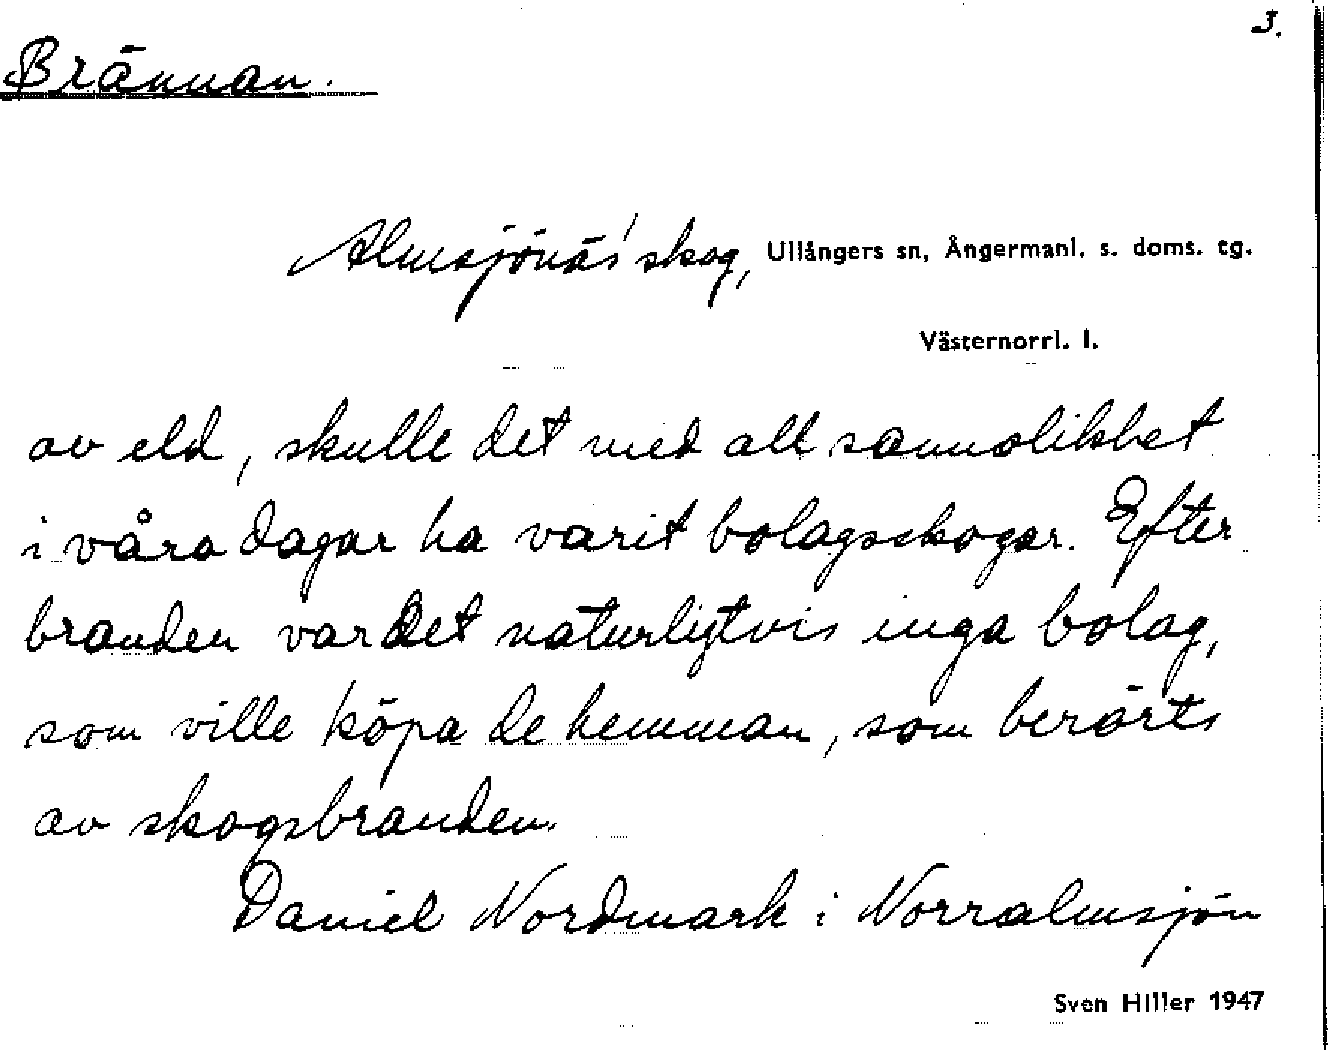 3.
Brännan.
Almsjönäs' skog, Ullångers sn, Ångermanl. s. doms. tg.
Västernorrl. l.
av eld, skulle det med all sannolikhet
i våra dagar ha varit bolagsskogar. Efter
branden var det naturligtvis inga bolag,
som ville köpa de hemman, som berörts
av skogsbranden.
Daniel Nordmark i Norralmsjön
Sven Hiller 1947